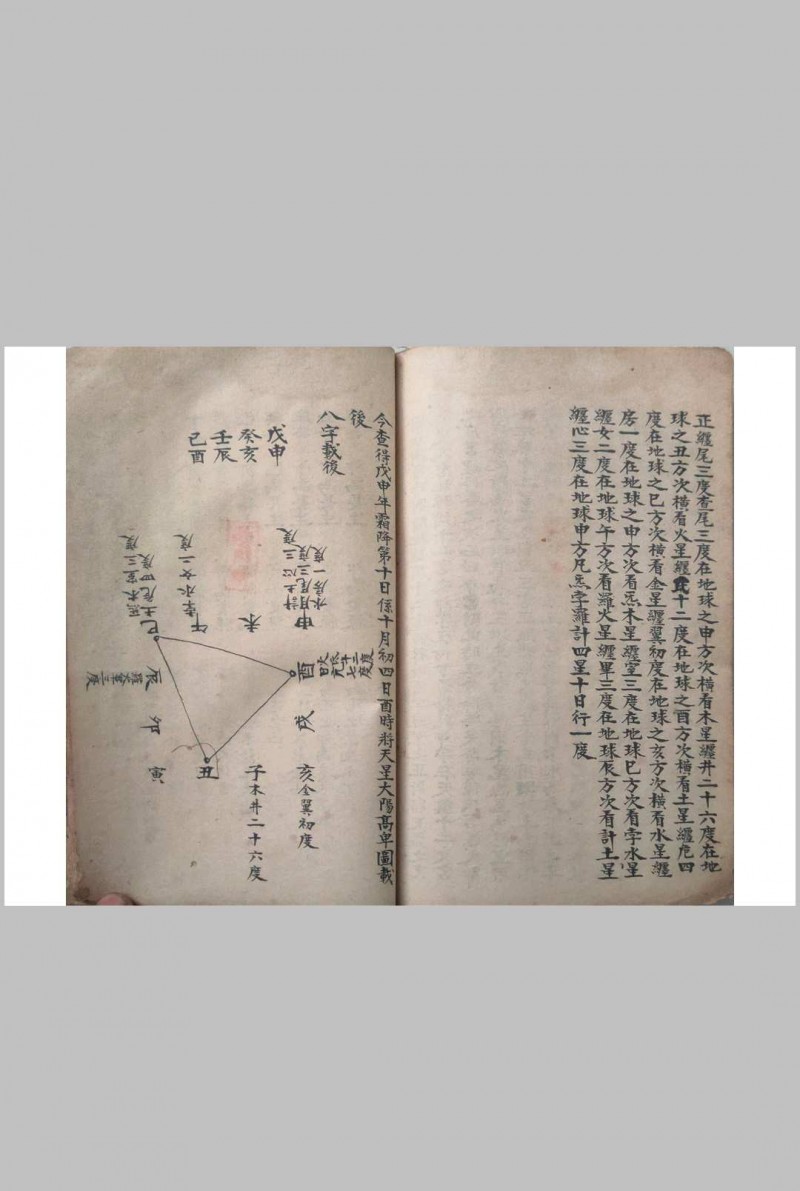 正纏尾三度查尾三度在地球之申方次橫看木星纏井二十六度在地
球之丑方次橫看火星纏氐十二度在地球之酉方次橫看土星纏危四
度在地球之巳方次橫看金星纏翼初度在地球之亥方次橫看水星纏
房一度在地球之申方次看炁木星纏室三度在地球巳方次看孛水星
纏女二度在地球午方次看羅火星纏畢三度在地球辰方次看計土星
纏心三度在地球申方凡炁孛羅計四星十日行一度
今查得戊申年霜降第十日係十月初四日酉時將天星太陽高卑圖載
後
八字載後
戊申
癸亥
壬辰
己酉
申
月尾三度
計土心三度
水房一度
未
午
孛水女二度
巳
土危四度
炁木室三度
辰
卯
寅
丑
子木井二十六度
亥金翼初度
戌
酉